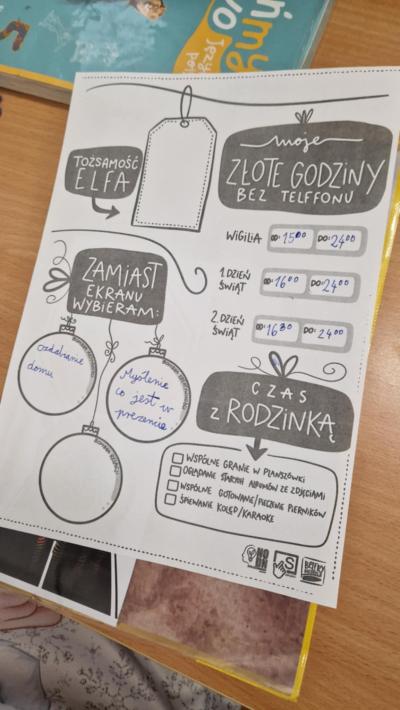 TOŻSAMOŚĆ
ELFA
moje
ZŁOTE GODZINY
BEZ TELEFONU
WIGILIA OD: 15⁰⁰ DO: 24⁰⁰
1.DZIEŃ
ŚWIĄT OD: 16⁰⁰ DO: 24⁰⁰
2.DZIEŃ
ŚWIĄT OD: 16³⁰ DO: 24⁰⁰
ZAMIAST
EKRANU
WYBIERAM:
ozdabianie
domu
Myślenie
co jest w
prezencie
CZAS
z RODZINKĄ
WSPÓLNE GRANIE W PLANSZÓWKI
OGLĄDANIE STARYCH ALBUMÓW ZE ZDJĘCIAMI
WSPÓLNE GOTOWANIE/PIECZENIE PIERNIKÓW
ŚPIEWANIE KOLĘD/KARAOKE